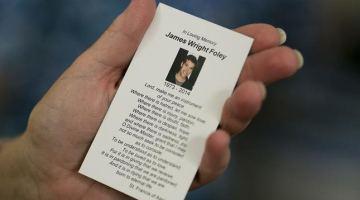 In Loving Memory
James Wright Foley
1973 - 2014
Lord, make me an instrument
of your peace.
Where there is hatred, let me sow love;
Where there is injury, pardon;
Where there is doubt, faith;
Where there is despair, hope;
Where there is darkness, light;
and where there is sadness, joy.
O Divine Master, grant that I may
not so much seek to be consoled
as to console;
To be understood as to understand;
To be loved as to love.
For it is in giving that we are receive,
it is in pardoning that we are pardoned,
And it is in dying that we are
born to eternal life.
St. Francis of